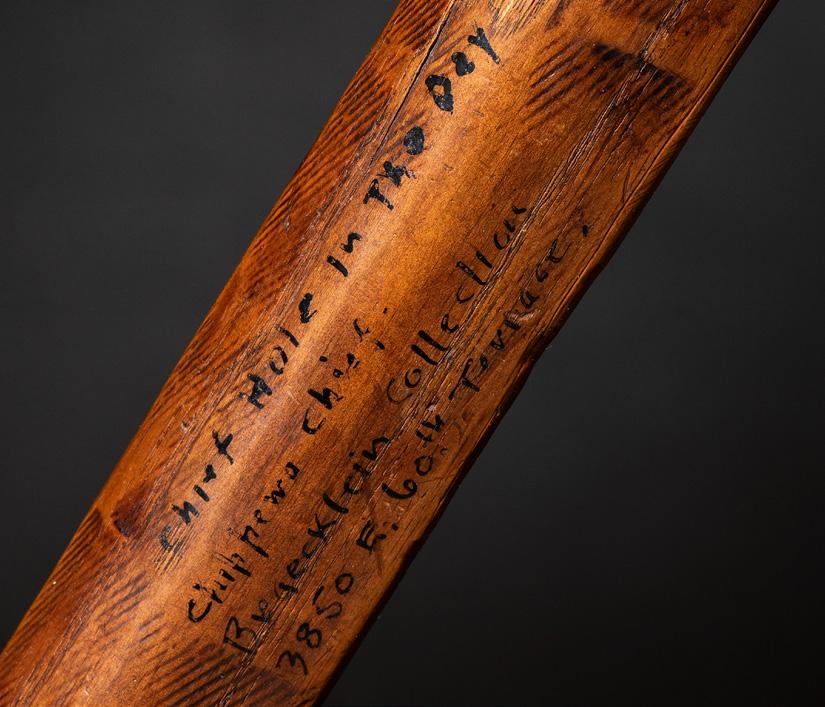 Chief Hole in The Day
Chippewa chief.
Collection
3850 E. 60th Terrace;